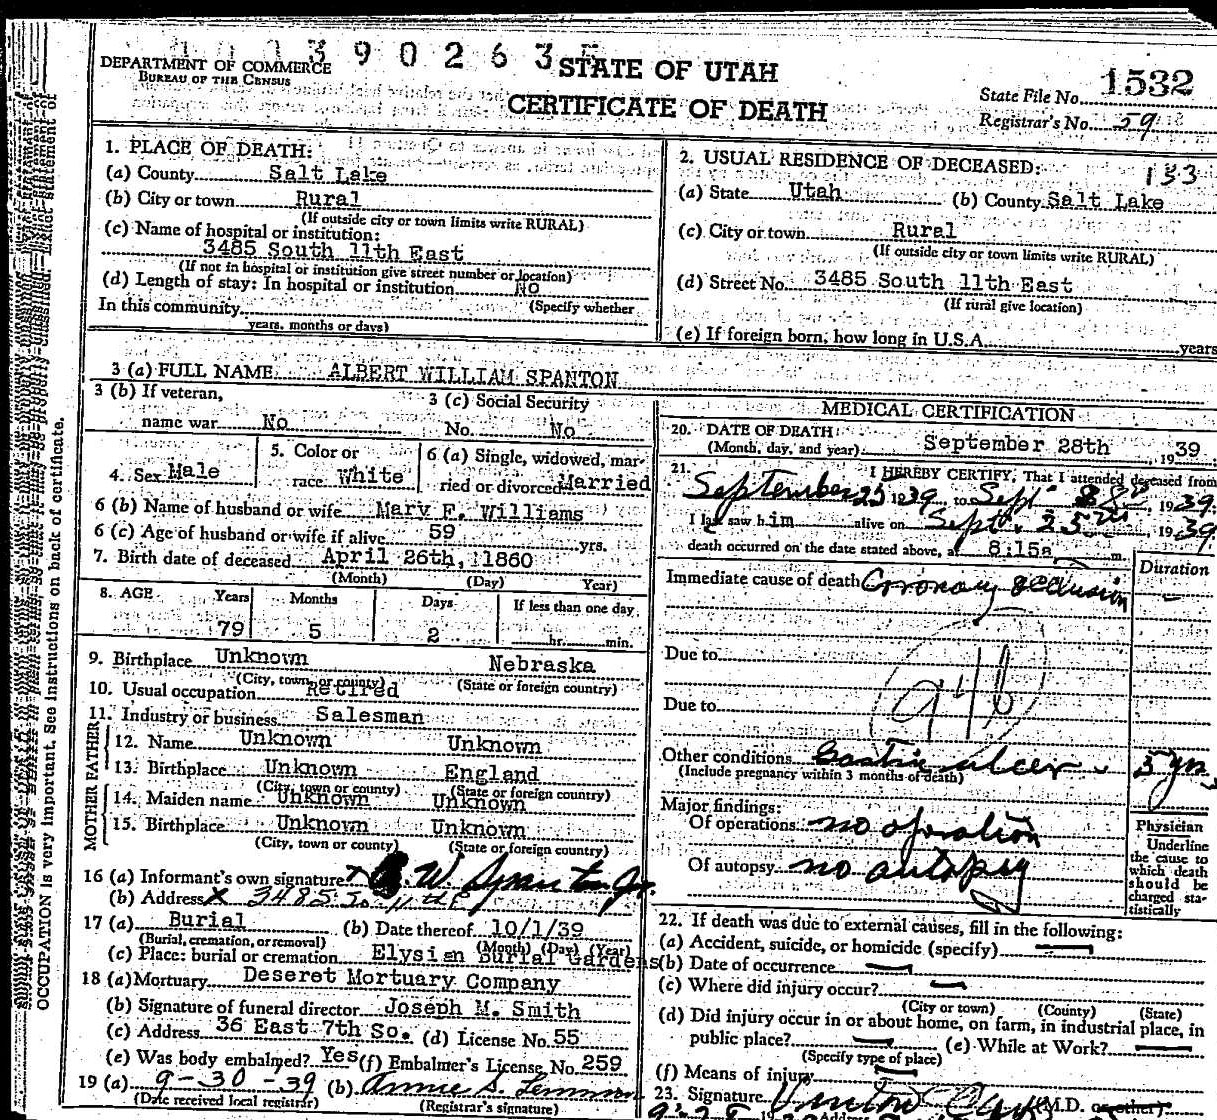 390263
DEPARTMENT OF COMMERCE
BUREAU OF THE CENSUS
STATE OF UTAH
CERTIFICATE OF DEATH
State File No. 1532
Registrar's No. 59
1. PLACE OF DEATH:
(a) County Salt Lake
(b) City or town Rural
(If outside city or town limits write RURAL)
(c) Name of hospital or institution:
3485 South 11th East
(If not in hospital or institution give street number or location)
(d) Length of stay: In hospital or institution No
(Specify whether
In this community
years, months or days)
2. USUAL RESIDENCE OF DECEASED:
133
(a) State Utah (b) County Salt Lake
(c) City or town Rural
(If outside city or town limits write RURAL)
(d) Street No. 3485 South 11th East
(If rural give location)
(e) If foreign born, how long in U.S.A. years
3 (a) FULL NAME ALBERT WILLIAM SPANTON
3 (b) If veteran,
name war No
3 (c) Social Security
No. No
4. Sex Male
5. Color or
race White
6 (a) Single, widowed, mar-
ried or divorced Married
6 (b) Name of husband or wife Mary E. Williams
6 (c) Age of husband or wife if alive 59 yrs.
7. Birth date of deceased April 26th, 1860
(Month) (Day) Year)
8. AGE Years Months Days If less than one day
79 5 2 hr. min.
9. Birthplace Unknown Nebraska
(City, town, or county) (State or foreign country)
10. Usual occupation Retired
11. Industry or business Salesman
FATHER
12. Name Unknown Unknown
13. Birthplace Unknown England
(City, town or county) (State or foreign country)
MOTHER
14. Maiden name Unknown Unknown
15. Birthplace Unknown Unknown
(City, town or county) (State or foreign country)
16 (a) Informant's own signature x A W Spanton Jr.
(b) Address x 3485 So 11th E
17 (a) Burial (b) Date thereof 10/1/39
(Burial, cremation, or removal) (Month) (Day) (Year)
(c) Place: burial or cremation Elysian Burial Gardens
18 (a) Mortuary Deseret Mortuary Company
(b) Signature of funeral director Joseph M. Smith
(c) Address 36 East 7th So. (d) License No. 55
(e) Was body embalmed? Yes (f) Embalmer's License No. 259
19 (a) 9-30-39 (b) Annie S. Lemmon
(Date received local registrar) (Registrar's signature)
MEDICAL CERTIFICATION
20. DATE OF DEATH
(Month, day, and year) September 28th, 1939
21. I HEREBY CERTIFY, That I attended deceased from
September 25 1939, to Sept 28th, 1939.
I last saw him alive on Sept. 25th, 1939
death occurred on the date stated above, at 8:15a m.
Duration
Immediate cause of death Coronary occlusion
Due to
94b
Due to
Other conditions Gastric ulcer 5 yrs
(Include pregnancy within 3 months of death)
Major findings:
Of operations no operation
Of autopsy no autopsy
Physician
Underline
the cause to
which death
should be
charged sta-
tistically
22. If death was due to external causes, fill in the following:
(a) Accident, suicide, or homicide (specify)
(b) Date of occurrence
(c) Where did injury occur?
(City or town) (County) (State)
(d) Did injury occur in or about home, on farm, in industrial place, in
public place? (e) While at Work?
(Specify type of place)
(f) Means of injury
23. Signature (M.D. or other)
OCCUPATION is very important. See instructions on back of certificate.